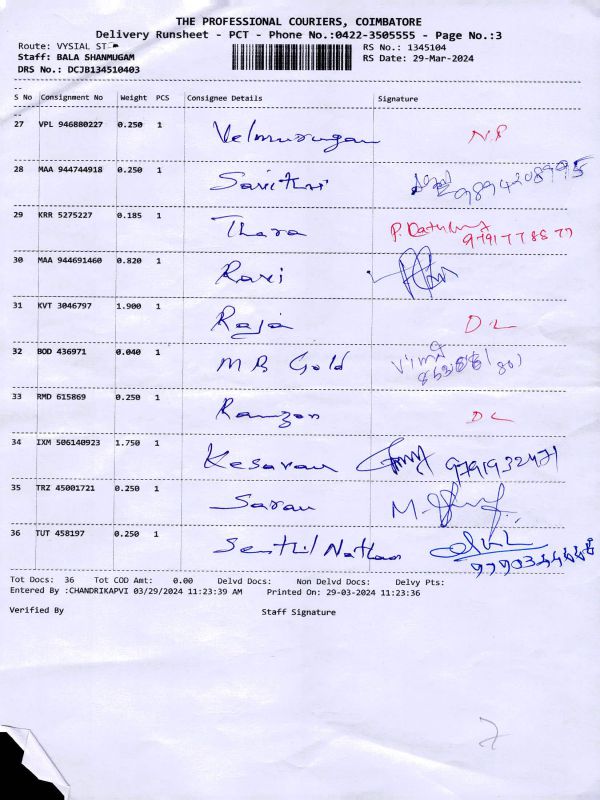 THE PROFESSIONAL COURIERS, COIMBATORE
Delivery Runsheet - PCT - Phone No.:0422-3505555 - Page No.:3
Route: VYSIAL ST RS No.: 1345104
Staff: BALA SHANMUGAM RS Date: 29-Mar-2024
DRS No.: DCJB134510403
S No Consignment No Weight PCS Consignee Details Signature
27 VPL 946880227 0.250 1 Velmurugan N.P
28 MAA 944744918 0.250 1 Savithri 9894208995
29 KRR 5275227 0.185 1 Thara 9791778877
30 MAA 944691460 0.820 1 Ravi
31 KVT 3046797 1.900 1 Raja D L
32 BOD 436971 0.040 1 M B Gold
33 RMD 615869 0.250 1 Ramzan D L
34 IXM 506140923 1.750 1 Kesavan 9791932471
35 TRZ 45001721 0.250 1 Saran
36 TUT 458197 0.250 1 Senthil Nathan
Tot Docs: 36 Tot COD Amt: 0.00 Delvd Docs: Non Delvd Docs: Delvy Pts:
Entered By :CHANDRIKAPVI 03/29/2024 11:23:39 AM Printed On: 29-03-2024 11:23:36
Verified By Staff Signature